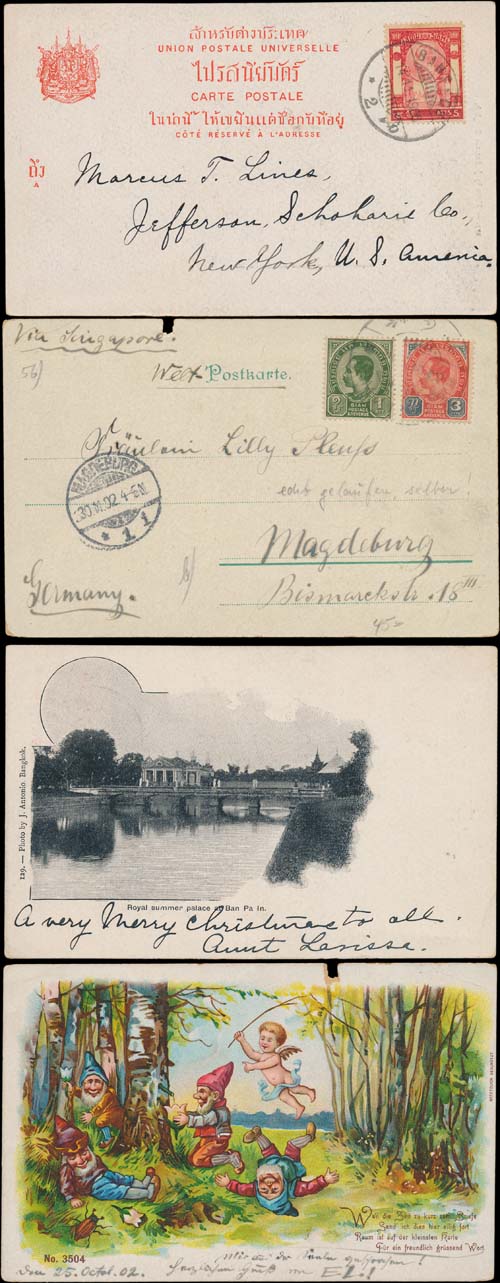 สำหรับต่างประเทศ
UNION POSTALE UNIVERSELLE
ไปรสนียบัตร์
CARTE POSTALE
ในน่านี้ ให้เขียนแต่ชื่อกับที่อยู่
CÔTÉ RÉSERVÉ À L'ADRESSE
ถึง
A
Marcus T. Lines,
Jefferson, Schoharie Co.,
New York, U. S. America.
Via Singapore.
56)
Postkarte.
SIAM
POSTAGE
& REVENUE
1
SIAM
POSTAGE
& REVENUE
3
Fräulein Lilly
MAGDEBURG
30.11.02.4-5N.
* 1 1
echt gelaufen, selten!
Magdeburg
Germany.
Bismarckstr. 18 III
45=
129. — Photo by J. Antonio. Bangkok.
Royal summer palace at Ban Pa In.
A very Merry Christmas to all.
Aunt Larissa.
Weil die Zeit zu kurz zum Briefe
Sand ich dies hier eilig fort
Raum ist auf der kleinsten Karte
Für ein freundlich grüssend Wort
No. 3504
den 25. Octob. 02.